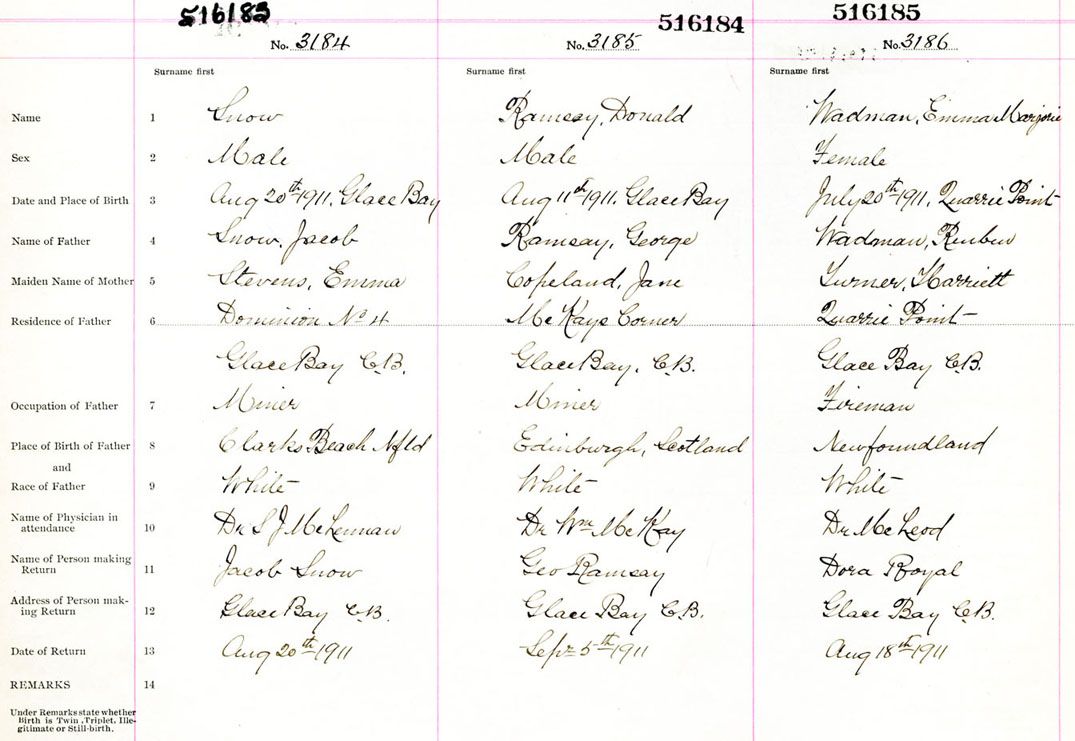 516183 516184 516185
No. 3184 No. 3185 No. 3186
Surname first Surname first Surname first
Name 1 Snow Ramsay, Donald Wadman, Emma Marjorie
Sex 2 Male Male Female
Date and Place of Birth 3 Aug 20th 1911, Glace Bay Aug 11th 1911, Glace Bay July 20th 1911, Quarrie Point
Name of Father 4 Snow, Jacob Ramsay, George Wadman, Reuben
Maiden Name of Mother 5 Stevens, Emma Copeland, Jane Turner, Harriett
Residence of Father 6 Dominion No 4 McKays Corner Quarrie Point
Glace Bay C.B. Glace Bay, C.B. Glace Bay C.B.
Occupation of Father 7 Miner Miner Fireman
Place of Birth of Father 8 Clarks Beach Nfld Edinburgh, Scotland Newfoundland
and
Race of Father 9 White White White
Name of Physician in
attendance 10 Dr S J McLennan Dr Wm McKay Dr McLeod
Name of Person making
Return 11 Jacob Snow Geo Ramsay Dora Royal
Address of Person mak-
ing Return 12 Glace Bay C.B. Glace Bay C.B. Glace Bay C.B.
Date of Return 13 Aug 20th 1911 Sept 5th 1911 Aug 18th 1911
REMARKS 14
Under Remarks state whether
Birth is Twin, Triplet, Ille-
gitimate or Still-birth.